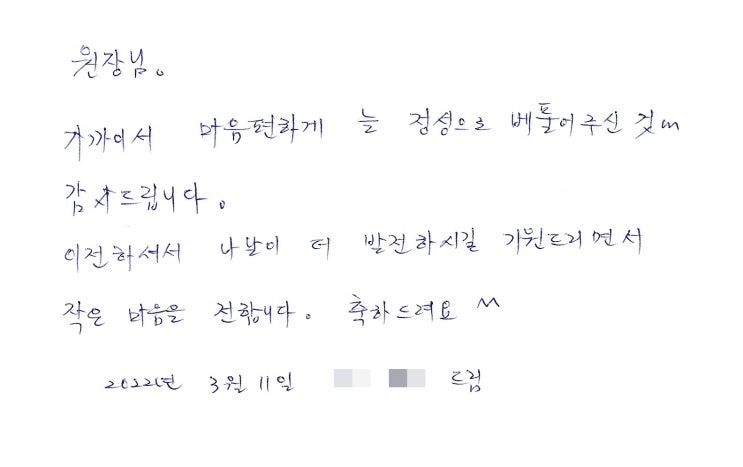 원장님.
가까이서 마음편하게 늘 정성으로 베풀어주신 것
감사드립니다.
이전하셔서 나날이 더 발전하시길 기원드리면서
작은 마음을 전합니다. 축하드려요 ^^
2022년 3월 11일 드림